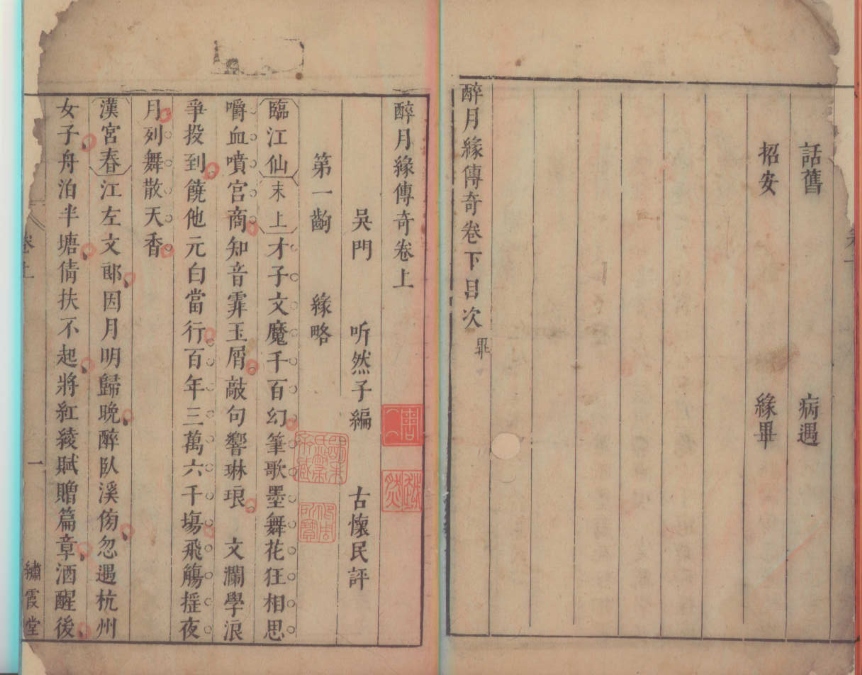 話舊　病遇
招安　緣畢
醉月緣傳奇卷下目次畢
醉月緣傳奇卷上
吳門　听然子編　古懷民評
第一齣　緣略
臨江仙末上才子文魔千百幻筆歌墨舞花狂相思
嚼血噴宮商知音霏玉屑敲句響琳琅　文瀾學浪
爭投到饒他元白當行百年三萬六千場飛觴揺夜
月列舞散天香
漢宮春江左文郎因月明歸晚醉臥溪傍忽遇杭州
女子舟泊半塘倩扶不起將紅綾賦贈篇章酒醒後
卷上
一
繡霞堂